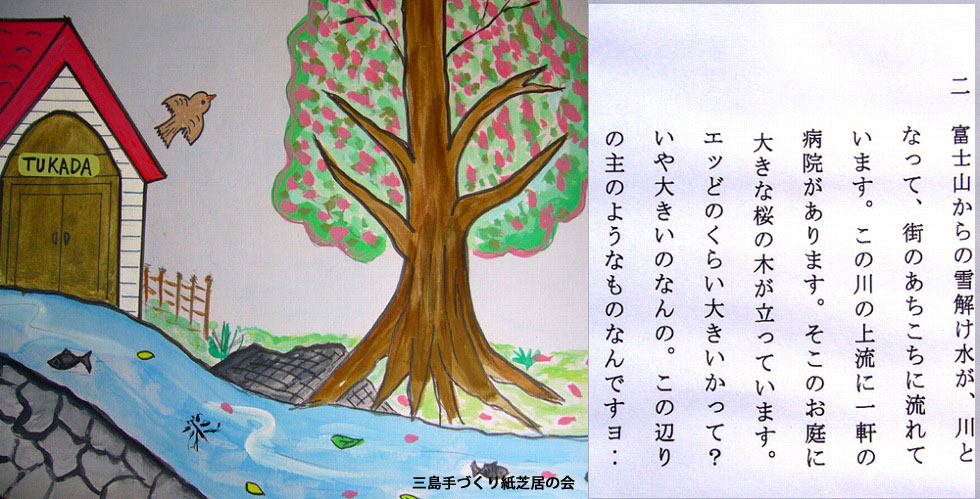 TUKADA
三島手づくり紙芝居の会
二
富士山からの雪解け水が、川と
なって、街のあちこちに流れて
います。この川の上流に一軒の
病院があります。そこのお庭に
大きな桜の木が立っています。
エッどのくらい大きいかって？
いや大きいのなんの。この辺り
の主のようなものなんですヨ‥